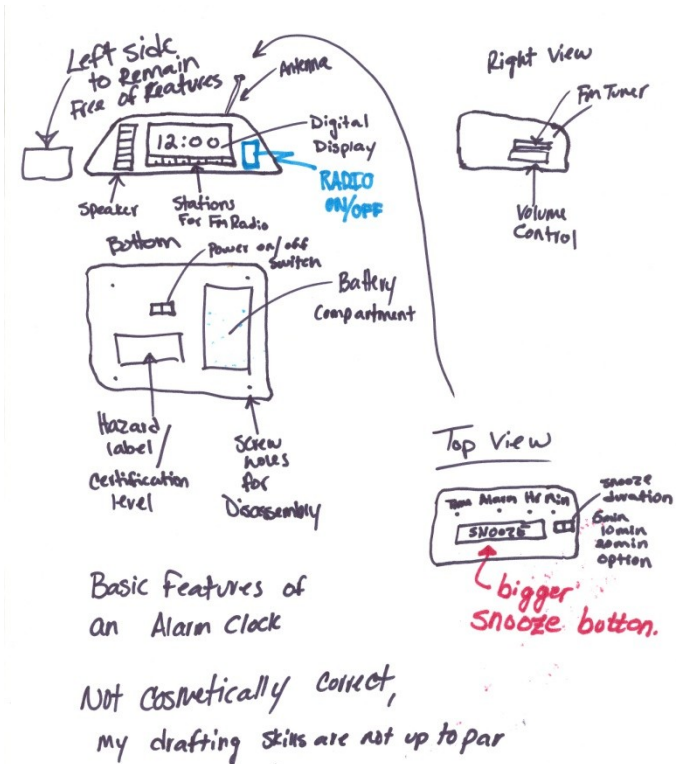 Left side
to Remain
Free of Features
Antenna
12:00
Digital
Display
RADIO
ON/OFF
Speaker
Stations
For Fm Radio
Right View
Fm Tuner
Volume
Control
Bottom
Power on/off
switch
Battery
Compartment
Hazard
label/
Certification
level
Screw
holes
for
Disassembly
Top View
Time Alarm Hr Min
SNOOZE
snooze
duration
5min
10min
20min
option
bigger
Snooze button.
Basic Features of
an Alarm Clock
Not Cosmetically Correct,
my drafting skills are not up to par